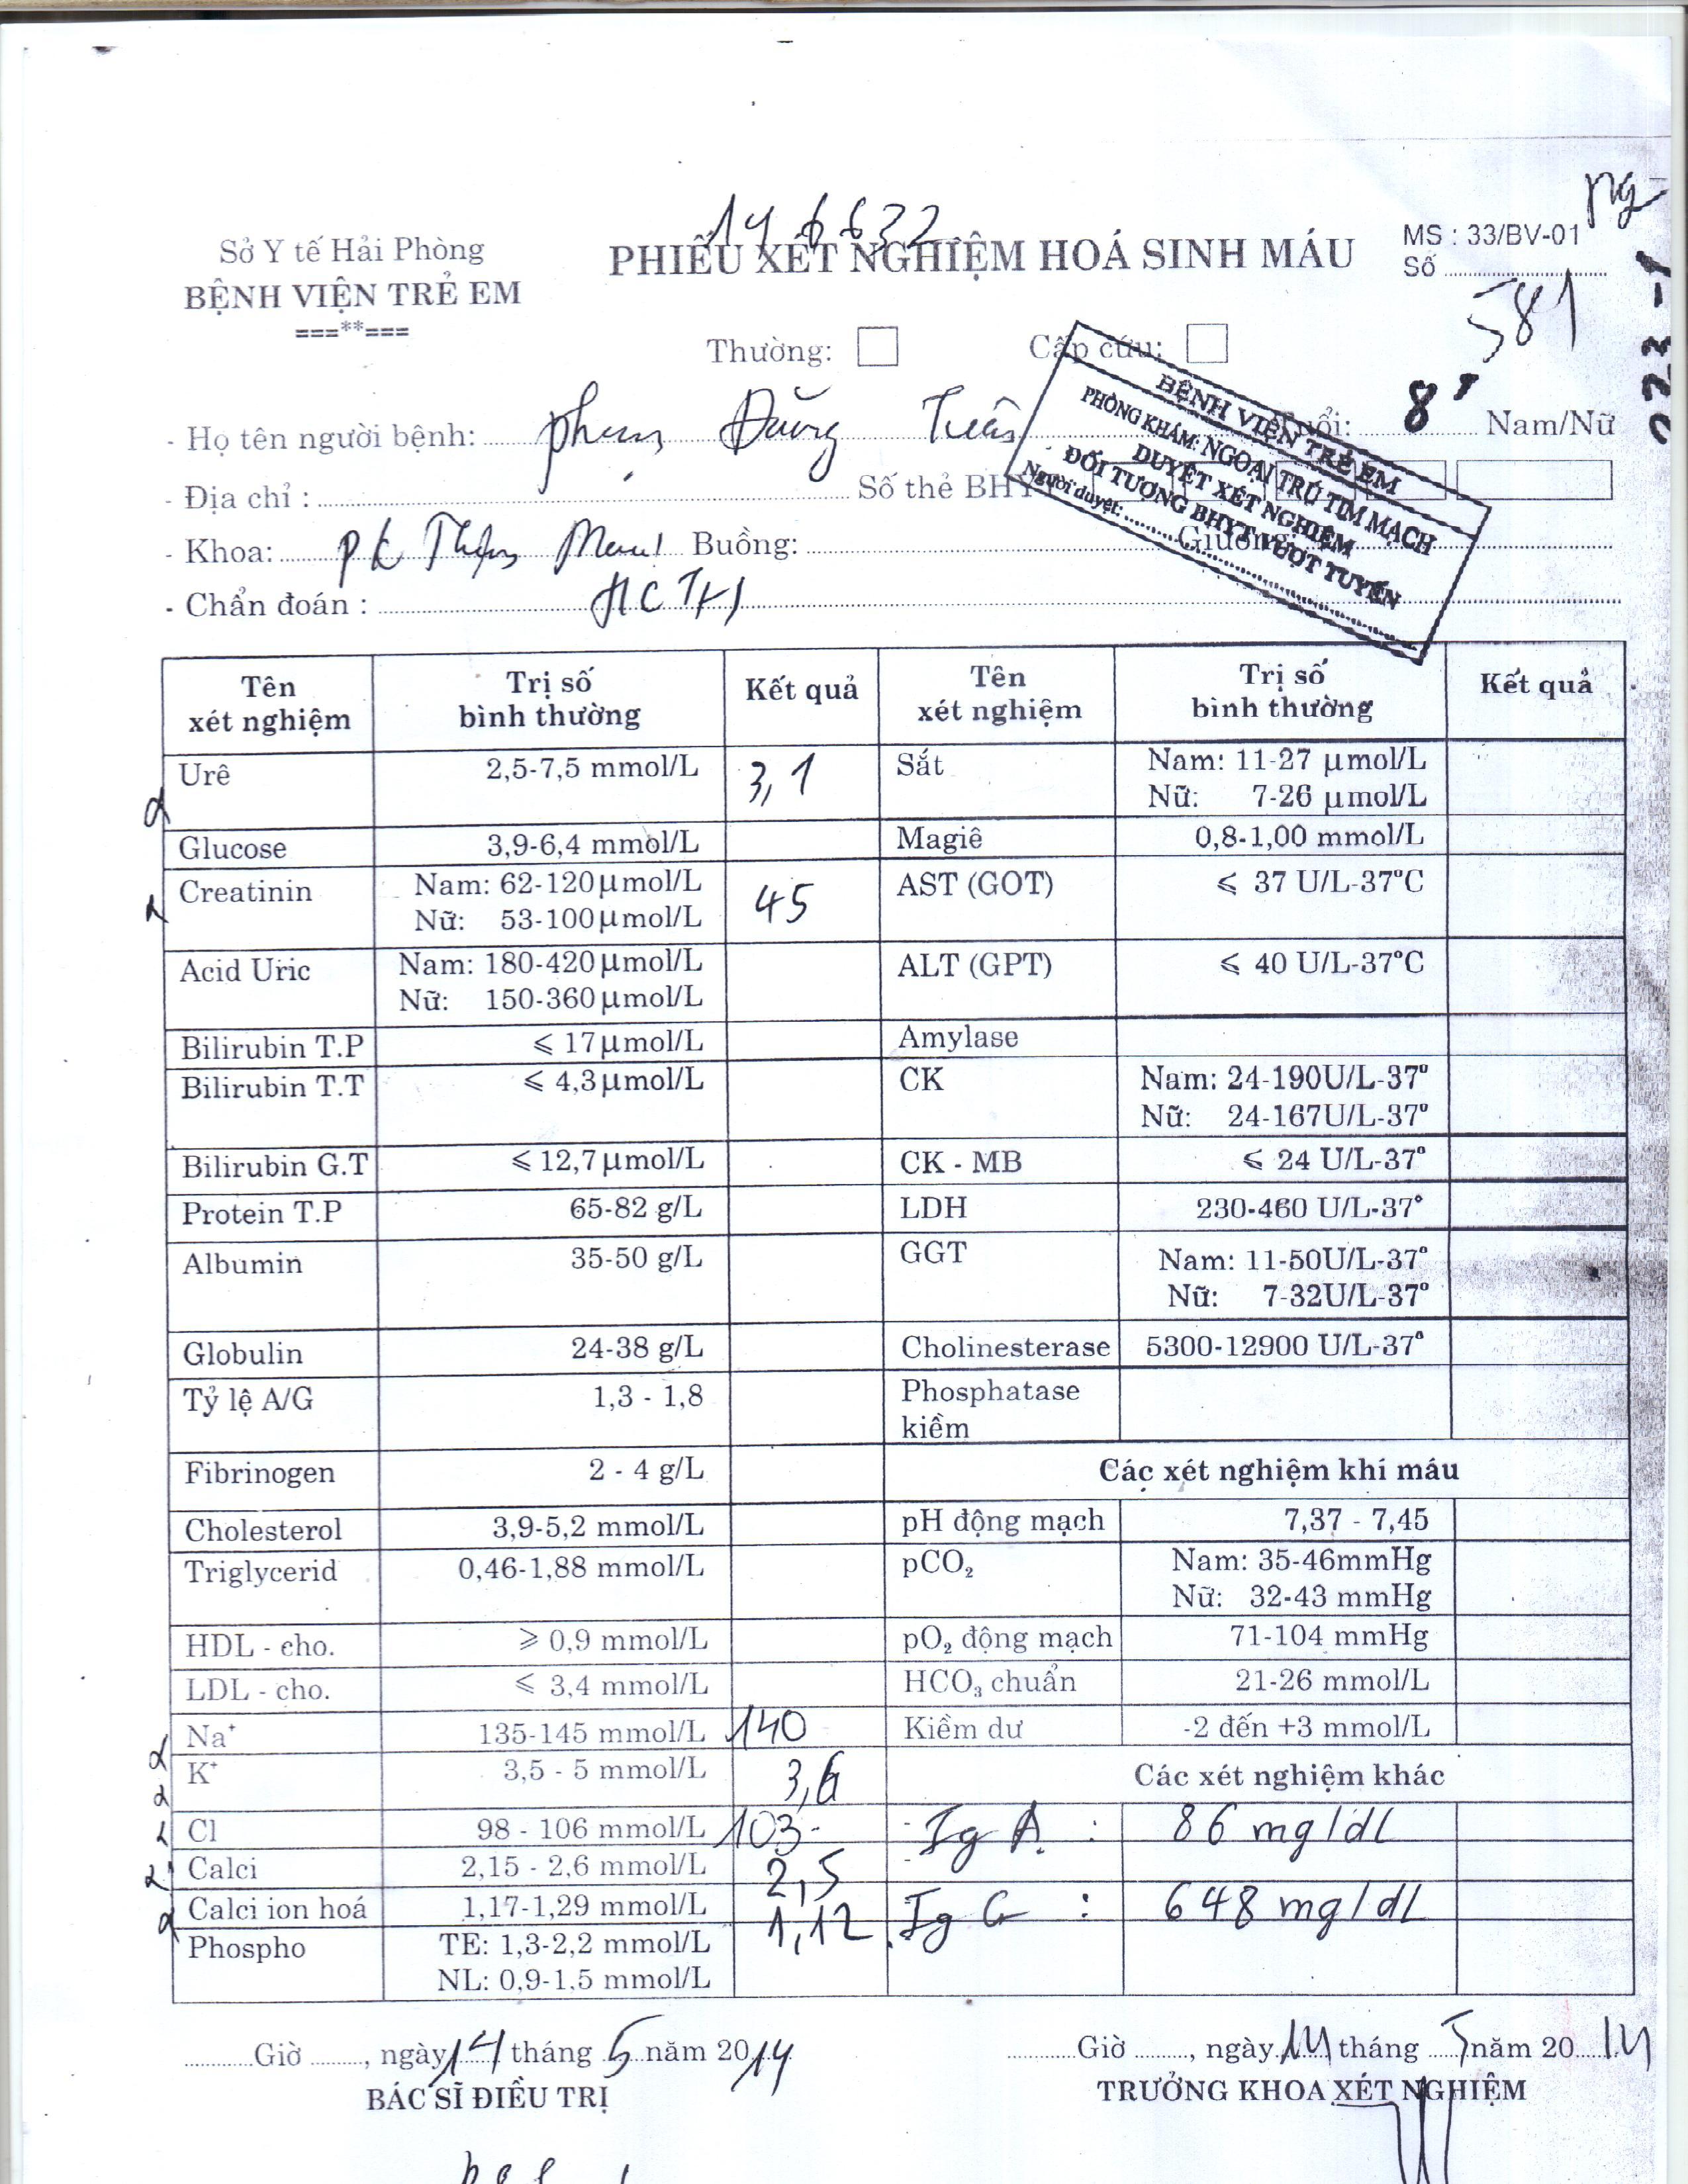 146632
Sở Y tế Hải Phòng
BỆNH VIỆN TRẺ EM
===**===
PHIẾU XÉT NGHIỆM HOÁ SINH MÁU
MS : 33/BV-01
Số
581
Thường: Cấp cứu:
- Họ tên người bệnh: Phạm Đăng Tuổi: 8 Nam/Nữ
- Địa chỉ : Số thẻ BHYT
- Khoa: PK Buồng: Giường:
- Chẩn đoán : HCTH
BỆNH VIỆN TRẺ EM
PHÒNG KHÁM: NGOẠI TRÚ TIM MẠCH
DUYỆT XÉT NGHIỆM
ĐỐI TƯỢNG BHYT VƯỢT TUYẾN
Người duyệt:
Tên xét nghiệm Trị số bình thường Kết quả Tên xét nghiệm Trị số bình thường Kết quả
Urê 2,5-7,5 mmol/L 3,1 Sắt Nam: 11-27 µmol/L
Nữ: 7-26 µmol/L
Glucose 3,9-6,4 mmol/L Magiê 0,8-1,00 mmol/L
Creatinin Nam: 62-120µmol/L 45 AST (GOT) ⩽ 37 U/L-37°C
Nữ: 53-100µmol/L
Acid Uric Nam: 180-420µmol/L ALT (GPT) ⩽ 40 U/L-37°C
Nữ: 150-360µmol/L
Bilirubin T.P ⩽ 17µmol/L Amylase
Bilirubin T.T ⩽ 4,3µmol/L CK Nam: 24-190U/L-37°
Nữ: 24-167U/L-37°
Bilirubin G.T ⩽ 12,7µmol/L CK - MB ⩽ 24 U/L-37°
Protein T.P 65-82 g/L LDH 230-460 U/L-37°
Albumin 35-50 g/L GGT Nam: 11-50U/L-37°
Nữ: 7-32U/L-37°
Globulin 24-38 g/L Cholinesterase 5300-12900 U/L-37°
Tỷ lệ A/G 1,3 - 1,8 Phosphatase kiềm
Fibrinogen 2 - 4 g/L Các xét nghiệm khí máu
Cholesterol 3,9-5,2 mmol/L pH động mạch 7,37 - 7,45
Triglycerid 0,46-1,88 mmol/L pCO₂ Nam: 35-46mmHg
Nữ: 32-43 mmHg
HDL - cho. ⩾ 0,9 mmol/L pO₂ động mạch 71-104 mmHg
LDL - cho. ⩽ 3,4 mmol/L HCO₃ chuẩn 21-26 mmol/L
Na⁺ 135-145 mmol/L 140 Kiềm dư -2 đến +3 mmol/L
K⁺ 3,5 - 5 mmol/L 3,6 Các xét nghiệm khác
Cl 98 - 106 mmol/L 103 - IgA : 86 mg/dl
Calci 2,15 - 2,6 mmol/L 2,5
Calci ion hoá 1,17-1,29 mmol/L 1,12 IgG : 648 mg/dl
Phospho TE: 1,3-2,2 mmol/L
NL: 0,9-1,5 mmol/L
Giờ , ngày 14 tháng 5 năm 2014 Giờ , ngày 14 tháng 5 năm 2014
BÁC SĨ ĐIỀU TRỊ TRƯỞNG KHOA XÉT NGHIỆM